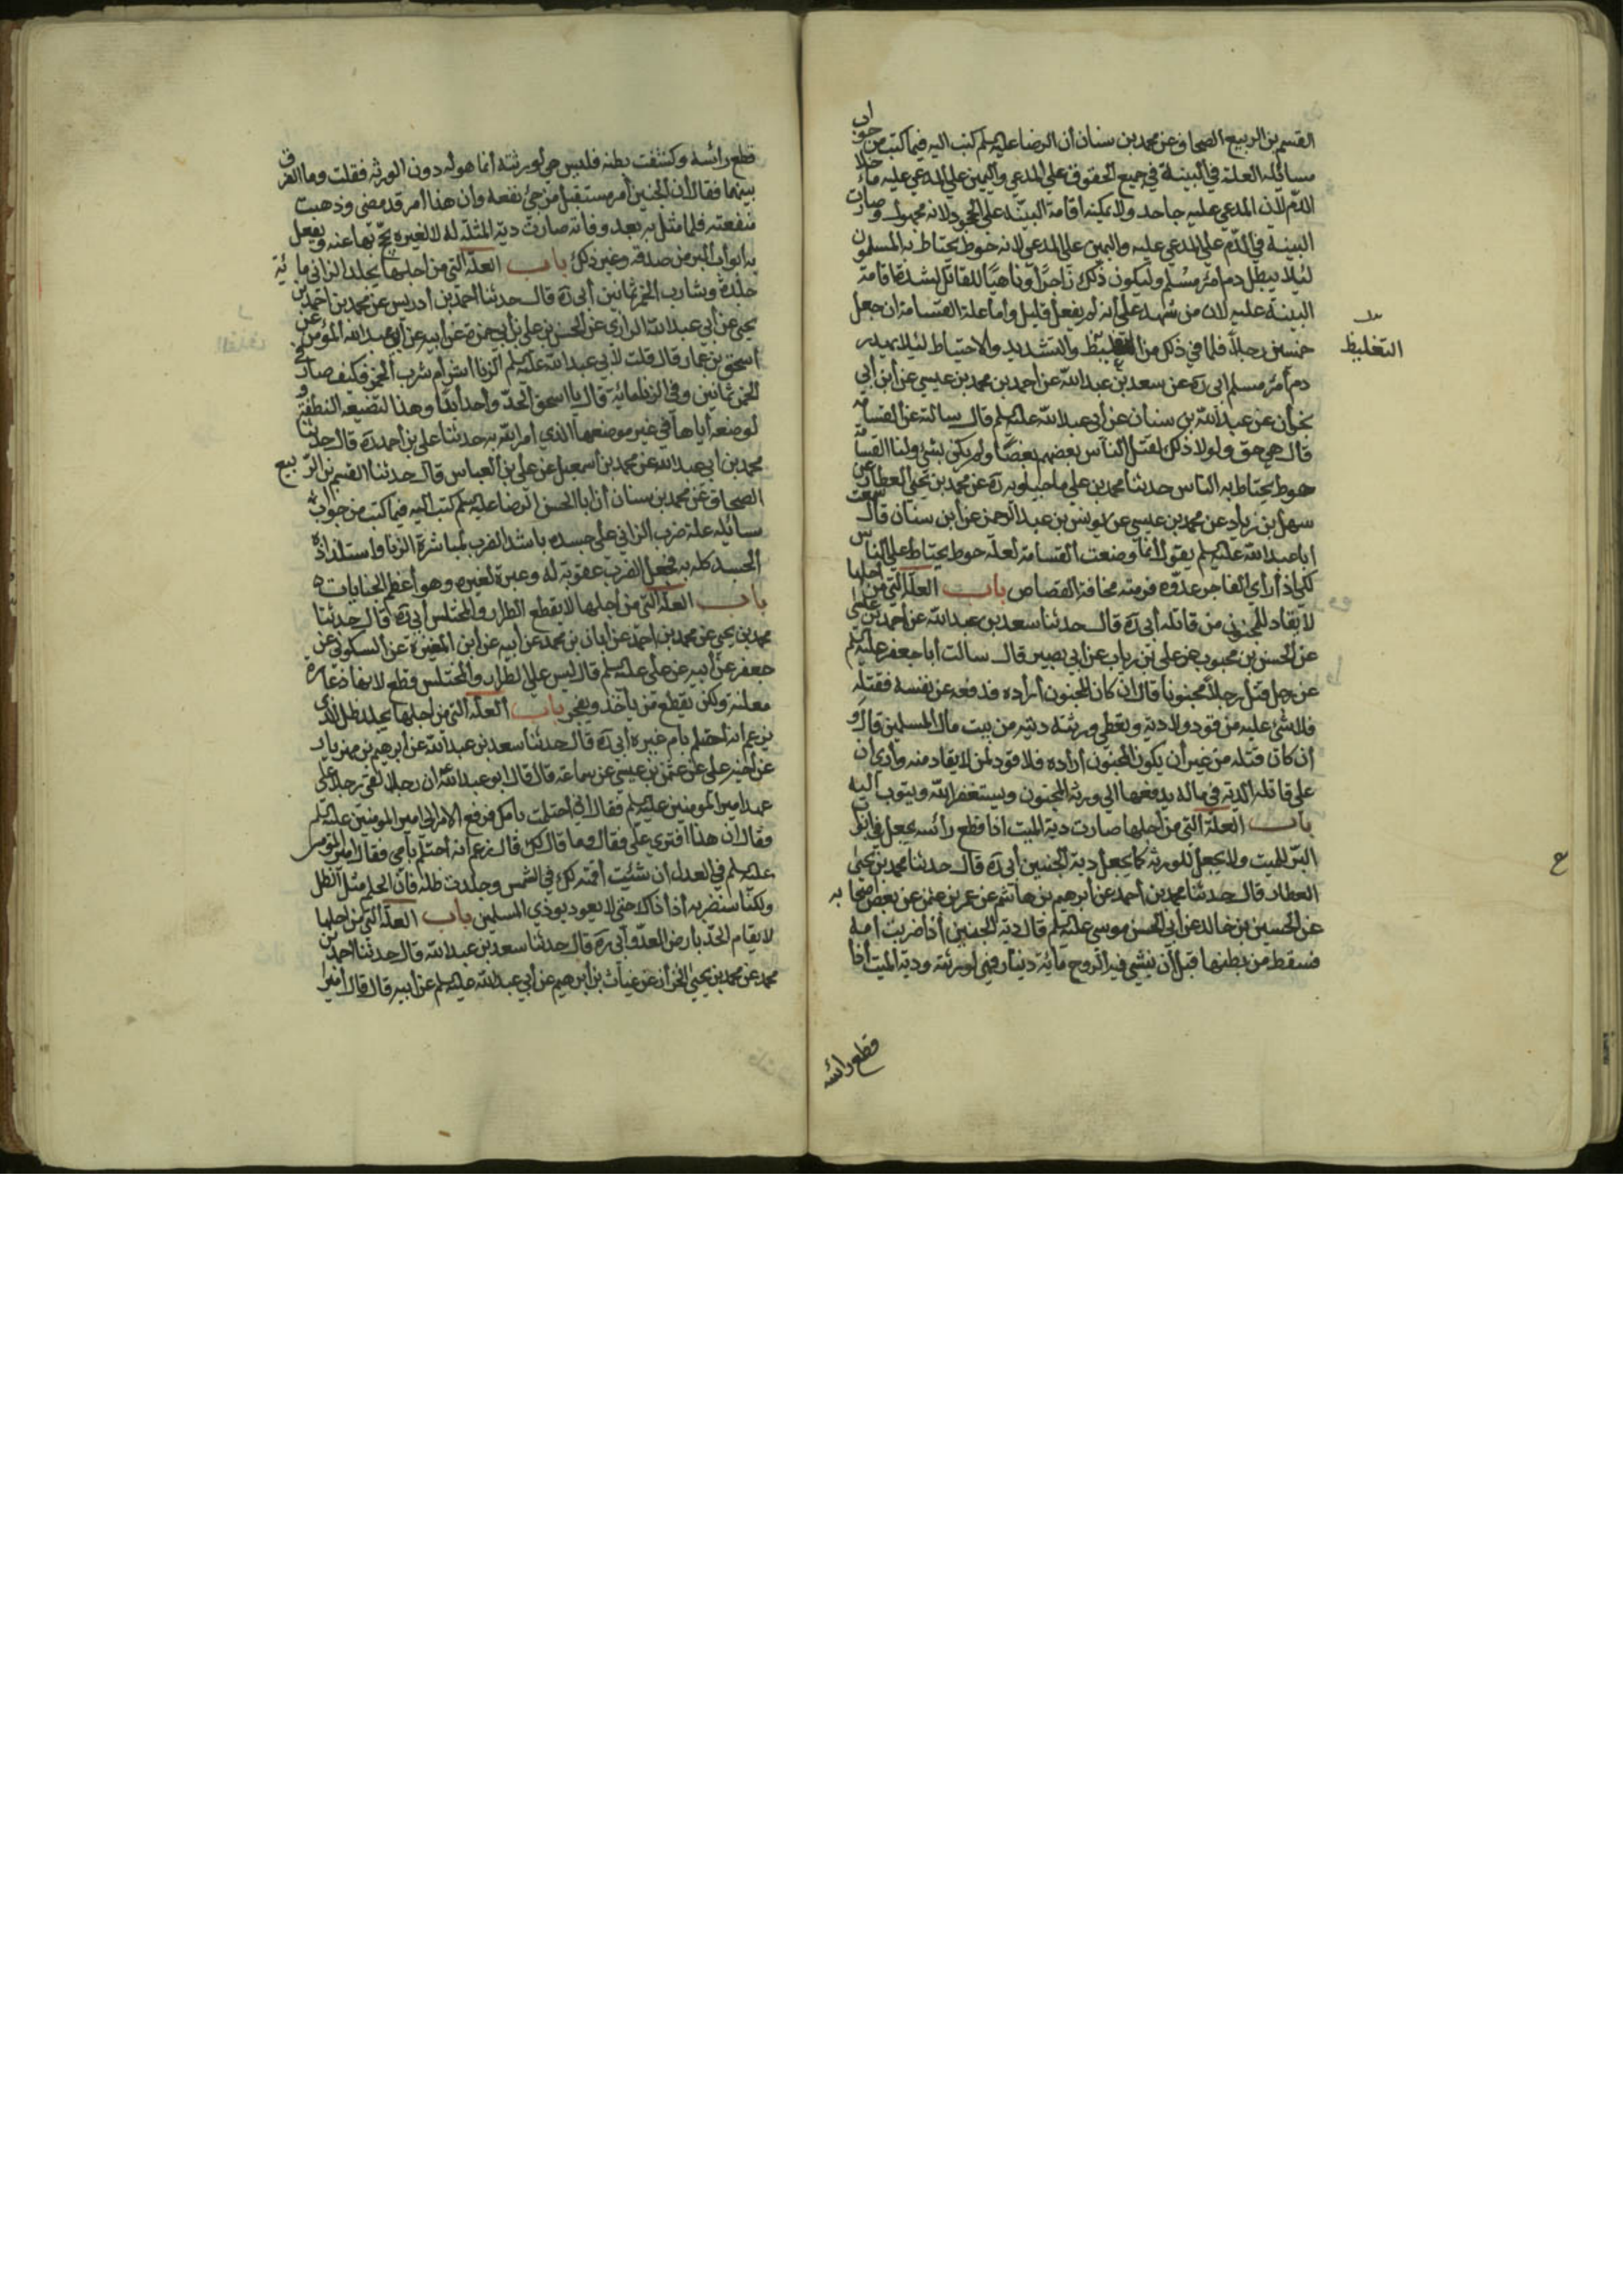 القسم بن الربيع الصحاف عن محمد بن سنان أن الرضا عليه السلم كتب اليه فيما كتب من جواب
مسائله العلة في البينة في جميع الحقوق علي المدعي واليمين علي المدعي عليه ما خلا
الدم لان المدعي عليه جاحد ولا يمكنه اقامة البينة علي الجحود لانه مجهول وصارت
البينة في الدم علي المدعي عليه واليمين علي المدعي لانه حوط يحتاط به المسلمون
لئلا يبطل دم امرء مسلم وليكون ذلك زاجرًا وناهيًا للقاتل لشدة اقامة
البينة عليه لان من شهد علي أنه لم يفعل قليل وأما علة القسامة ان جعل
خمسين رجلاً فلما في ذلك من التغليظ والتشديد والاحتياط لئلا يهدر
التغليظ
دم أمرء مسلم ابي ره عن سعد بن عبد الله عن احمد بن محمد بن عيسي عن ابن أبي
نجران عن عبد الله بن سنان عن أبي عبد الله عليه السلم قال سالته عن القسامة
قال هي حق ولولا ذلك لقتل الناس بعضهم بعضًا ولم يكن بشئ وانما القسامة
حوط يحتاط به الناس حدثنا محمد بن علي ماجيلويه ره عن محمد بن يحيي العطار عن
سهل بن زياد عن محمد بن عيسي عن يونس بن عبد الرحمن عن ابن سنان قال سمعت
ابا عبد الله عليه السلم يقول أنما وضعت القسامة لعلة حوط يحتاط علي الناس
لكي اذا رأي الفاجر عدوه فر منه مخافة القصاص باب العلة التي من أجلها
لا يقاد للمجنون من قاتله أبي ره قال حدثنا سعد بن عبد الله عن أحمد بن علي
عن الحسن بن محبوب عن علي بن رياب عن ابي بصير قال سالت أبا جعفر عليه السلم
عن رجل قتل رجلاً مجنونا قال ان كان المجنون أراده فدفعه عن نفسه فقتله
فلا شئ عليه من قود ولا دية ويعطي ورثته ديته من بيت مال المسلمين قال و
أن كان قتله من غير أن يكون المجنون أراده فلا قود لمن لا يقاد منه وأري أن
علي قاتله الدية في ماله يدفعها الي ورثة المجنون ويستغفر الله ويتوب اليه
باب العلة التي من أجلها صارت دية الميت اذا قطع رائسه يجعل في
البر للميت ولا يجعل للورثة كما يجعل دية الجنين أبي ره قال حدثنا محمد بن يحيي
العطار قال حدثنا محمد بن أحمد عن أبرهيم بن هاشم عن عمر بن عثمن عن بعض أصحابه
ع
عن الحسين بن خالد عن أبي الحسن موسي عليه السلم قال دية الجنين أذا ضربت أمه
فسقط من بطنها قبل أن ينشي فيه الروح مائة دينار فهي لورثته ودية الميت أذا
قطع رائسه
قطع رائسه وكشفت بطنه فليس هي لورثته أنما هو له دون الورثة فقلت وما الفرق
بينهما فقال أن الجنين أمر مستقبل مرجئ نفعه وأن هذا أمر قد مضي وذهبت
منفعته فلما مثل به بعد وفاته صارت دية المثلة له لا لغيره يحج بها عنه ويفعل
به ابواب البر من صدقة وغير ذلك باب العلة التي من اجلها يجلد الزاني مائة
جلدة وشارب الخمر ثمانين أبي ره قال حدثنا احمد بن أدريس عن محمد بن احمد بن
يحيي عن ابي عبد الله الرازي عن الحسن بن علي بن أبي حمزة عن أبيه عن ابي عبد الله المؤمن عن
أسحق بن عمار قال قلت لأبي عبد الله عليه السلم الزنا اشر أم شرب الخمر فكيف صار في
الخمر ثمانين وفي الزنا مائة قال يا اسحق الحد واحد أبدًا وهذا لتضيعه النطفة و
لوضعه أياها في غير موضعها الذي أمر به حدثنا علي بن أحمد ره قال حدثنا
محمد بن أبي عبد الله عن محمد بن أسمعيل عن علي بن العباس قال حدثنا القسم بن الربيع
الصحاف عن محمد بن سنان أن ابا الحسن الرضا عليه السلم كتب اليه فيما كتب من جواب
مسائله علة ضرب الزاني علي جسده باشد الضرب لمباشرة الزنا واستلذاذ
الجسد كله به فجعل الضرب عقوبة له وعبرة لغيره وهو أعظم الجنايات
باب العلة التي من أجلها لا يقطع الطرار والمختلس أبي ره قال حدثنا
محمد بن يحيي عن محمد بن احمد عن أبان بن محمد عن أبيه عن ابن المغيرة عن السكوني عن
جعفر عن أبيه عن علي عليه السلم قال ليس علي الطرار والمختلس قطع لانها دغارة
معلنة ولكن يقطع من يأخذ ويخفي باب العلة التي من اجلها يجلد ظل الذي
يزعم انه أحتلم بام غيره أبي ره قال حدثنا سعد بن عبد الله عن أبرهيم بن مهزيار
عن أخيه علي عن عثمن بن عيسي عن سماعة قال قال ابو عبد الله ان رجلا لقي رجلا علي
عهد امير المومنين عليه السلم فقال أني أحتلمت بأمك فرفع الامر الي امير المومنين عليه السلم
وقال ان هذا افتري علي فقال وما قال لك قال زعم انه أحتلم بأمي فقال امير المومنين
عليه السلم في العدل أن شئت أقمته لك في الشمس وجلدت ظله فان الحلم مثل الظل
ولكنا سنضربه أذا ذاك حتي لا يعود يوذي المسلمين باب العلة التي من اجلها
لا يقام الحد بارض العدو أبي ره قال حدثنا سعد بن عبد الله قال حدثنا احمد بن
محمد عن محمد بن يحيي الخزاز عن غياث بن ابرهيم عن أبي عبد الله عليه السلم عن أبيه قال قال أمير